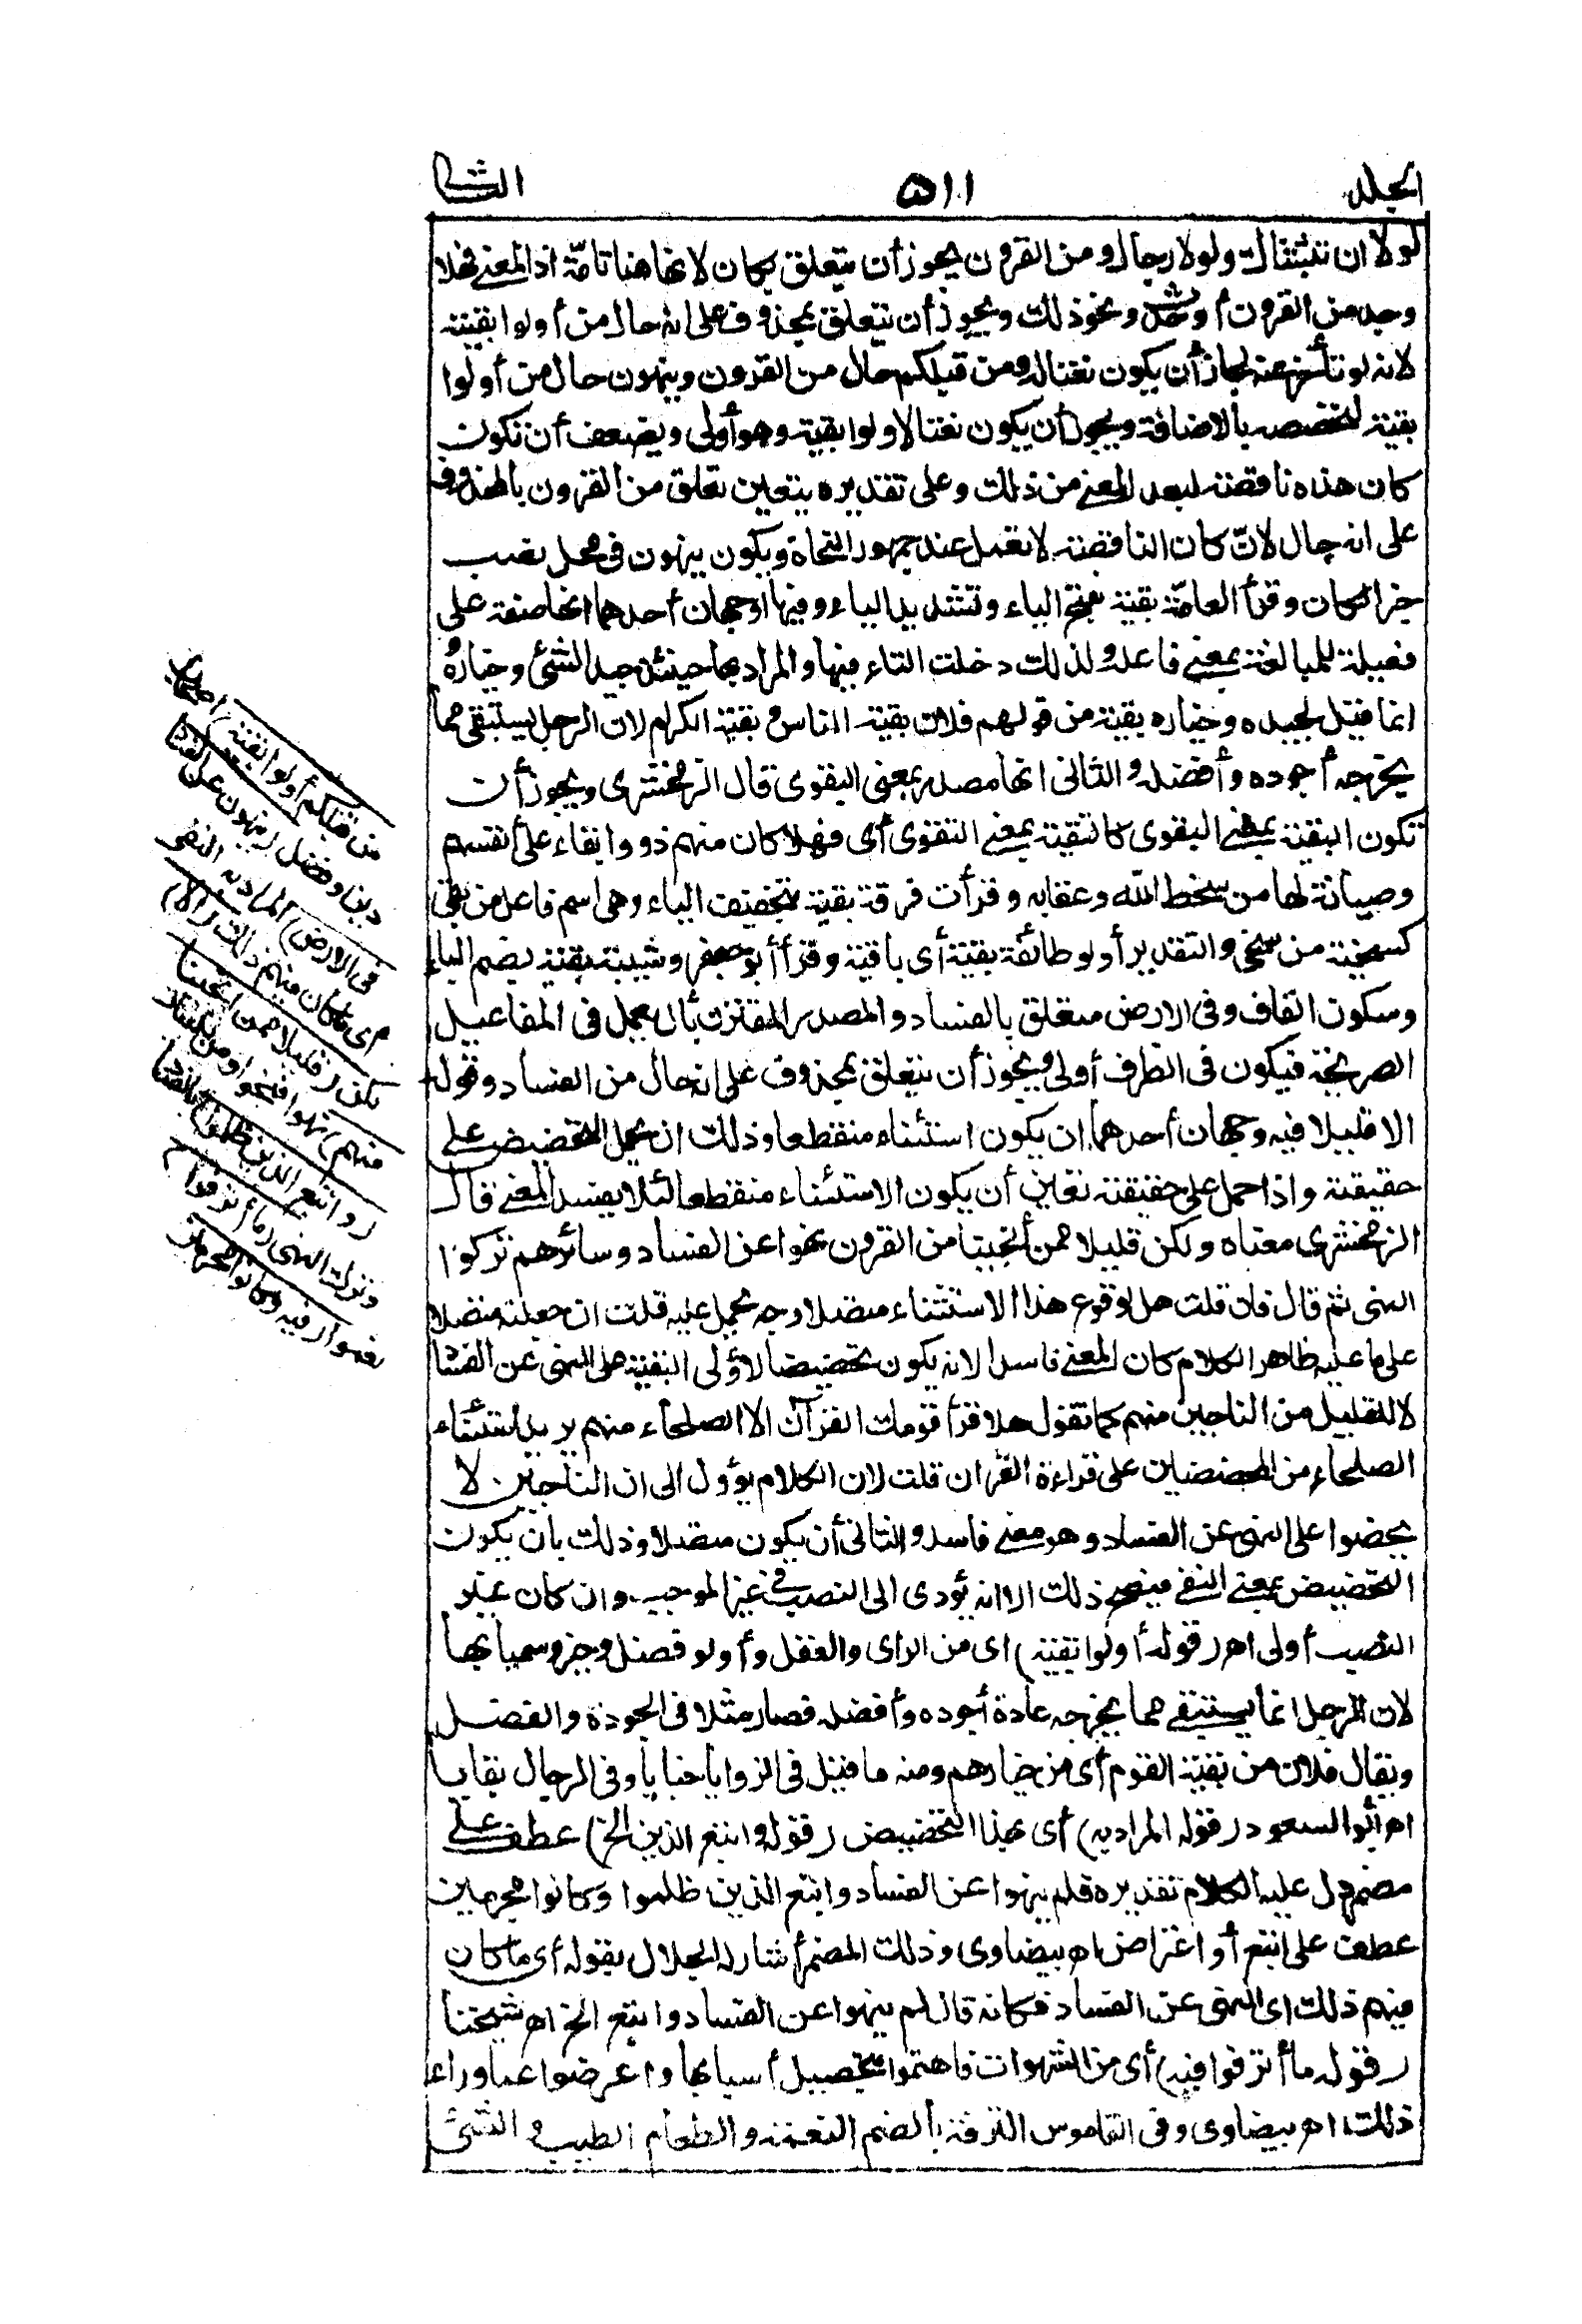 الجلد ٥١١ الثانى
لولا ان تثبتناك ولولا رجال ومن القرون يجوز أن يتعلق بكان لانها هنا تامّة اذ المعنى فهلا
وجد من القرون أو حدث ونحو ذلك ويجوز أن يتعلق بمحذوف على انه حال من أولوا بقيته
لانه لو تأخر عنه لجاز أن يكون نعتاله ومن قبلكم حال من القرون وينهون حال من أولوا
بقية لتخصصه بالاضافة ويجوز أن يكون نعتا لاولوا بقية وهو أولى ويضعف أن تكون
كان هذه ناقصة لبعد المعنى من ذلك وعلى تقديره يتعين تعلق من القرون بالمحذوف
على انه حال لانّ كان الناقصة لا تعمل عند جمهور النحاة ويكون ينهون فى محل نصب
خبرا لكان وقرأ العامّة بقية بفتح الباء وتشديد الياء وفيها وجهان أحدهما انها صفة على
فعيلة للمبالغة بمعنى فاعل ولذلك دخلت التاء فيها والمراد بها حينئذ جيد الشئ وخياره
انما قيل لجيده وخياره بقية من قولهم فلان بقية الناس وبقية الكرام لان الرجل يستبقى مما
يخرجه أجوده وأفضله والثانى انها مصدر بمعنى البقوى قال الزمخشرى ويجوز أن
تكون البقية بمعنى البقوى كالتقية بمعنى التقوى أى فهلا كان منهم ذووا بقاء على أنفسهم
وصيانة لها من سخط الله وعقابه وقرأت فرقة بقية بتخفيف الياء وهى اسم فاعل من بقى
كسمخية من سمخى والتقدير أولو طائفة بقية أى باقية وقرأ أبو جعفر وشيبة بقية بضم الباء
وسكون القاف وفى الارض متعلق بالفساد والمصدر المقترن بأل يعمل فى المفاعيل
الصريحة فيكون فى الظرف أولى ويجوز أن يتعلق بمحذوف على انه حال من الفساد وقوله
الا قليلا فيه وجهان أحدهما ان يكون استثناء منقطعا وذلك ان يحمل التحضيض على
حقيقته واذا حمل على حقيقته تعين أن يكون الاستثناء منقطعا لئلا يفسد المعنى قال
الزمخشرى معناه ولكن قليلا ممن أنجينا من القرون نهوا عن الفساد وسائرهم تركوا
النهى ثم قال فان قلت هل لوقوع هذا الاستثناء متصلا وجه يحمل عليه قلت ان جعلته متصلا
على ما عليه ظاهر الكلام كان المعنى فاسدا لانه يكون تحضيضا لاولى البقية على النهى عن الفساد
لا للقليل من الناجين منهم كما تقول هلا قرأ قومك القرآن الا الصلحاء منهم يريد استثناء
الصلحاء من المحضضين على قراءة القرآن قلت لان الكلام يؤول الى ان الناجين لا
يحضوا على النهى عن الفساد وهو معنى فاسد والثانى أن يكون متصلا وذلك بان يكون
التحضيض بمعنى النفى فيصح ذلك الا انه يؤدى الى النصب فى غير الموجب وان كان غير
النصب أولى اهـ (قوله أولوا بقية) اى من الراى والعقل وأولو فضل وخير وسميا بها
لان الرجل انما يستبقى مما يخرجه عادة أجوده وأفضله فصار مثلا فى الجودة والفضل
ويقال فلان من بقية القوم أى من خيارهم ومنه ما قيل فى الزوايا خبايا وفى الرجال بقايا
اهـ أبو السعود (قوله المراد به) أى بهذا التحضيض (قوله واتبع الذين الخ) عطف على
مضمر دل عليه الكلام تقديره فلم ينهوا عن الفساد واتبع الذين ظلموا وكانوا مجرمين
عطف على اتبع أو اعتراض اهـ بيضاوى وذلك المضمر أشار له الجلال بقوله أى ما كان
فيهم ذلك اى النهى عن الفساد فكانه قال لم ينهوا عن الفساد واتبع الخ اهـ شيخنا
(قوله ما أترفوا فيه) أى من الشهوات فاهتموا بتحصيل أسبابها واعرضوا عما وراء
ذلك اهـ بيضاوى وفى القاموس الترفة بالضم النعمة والطعام الطيب والشئ
من قبلكم أولوا بقية) اصحاب
دين وفضل (ينهون عن الفساد
فى الارض) المراد به النفى
أى ما كان فيهم ذلك (الا)
لكن (قليلا ممن أنجينا
منهم) نهوا فنجوا ومن للبيان
(واتبع الذين ظلموا) بالفساد
وترك النهى (ما أترفوا)
نعموا (فيه وكانوا مجرمين